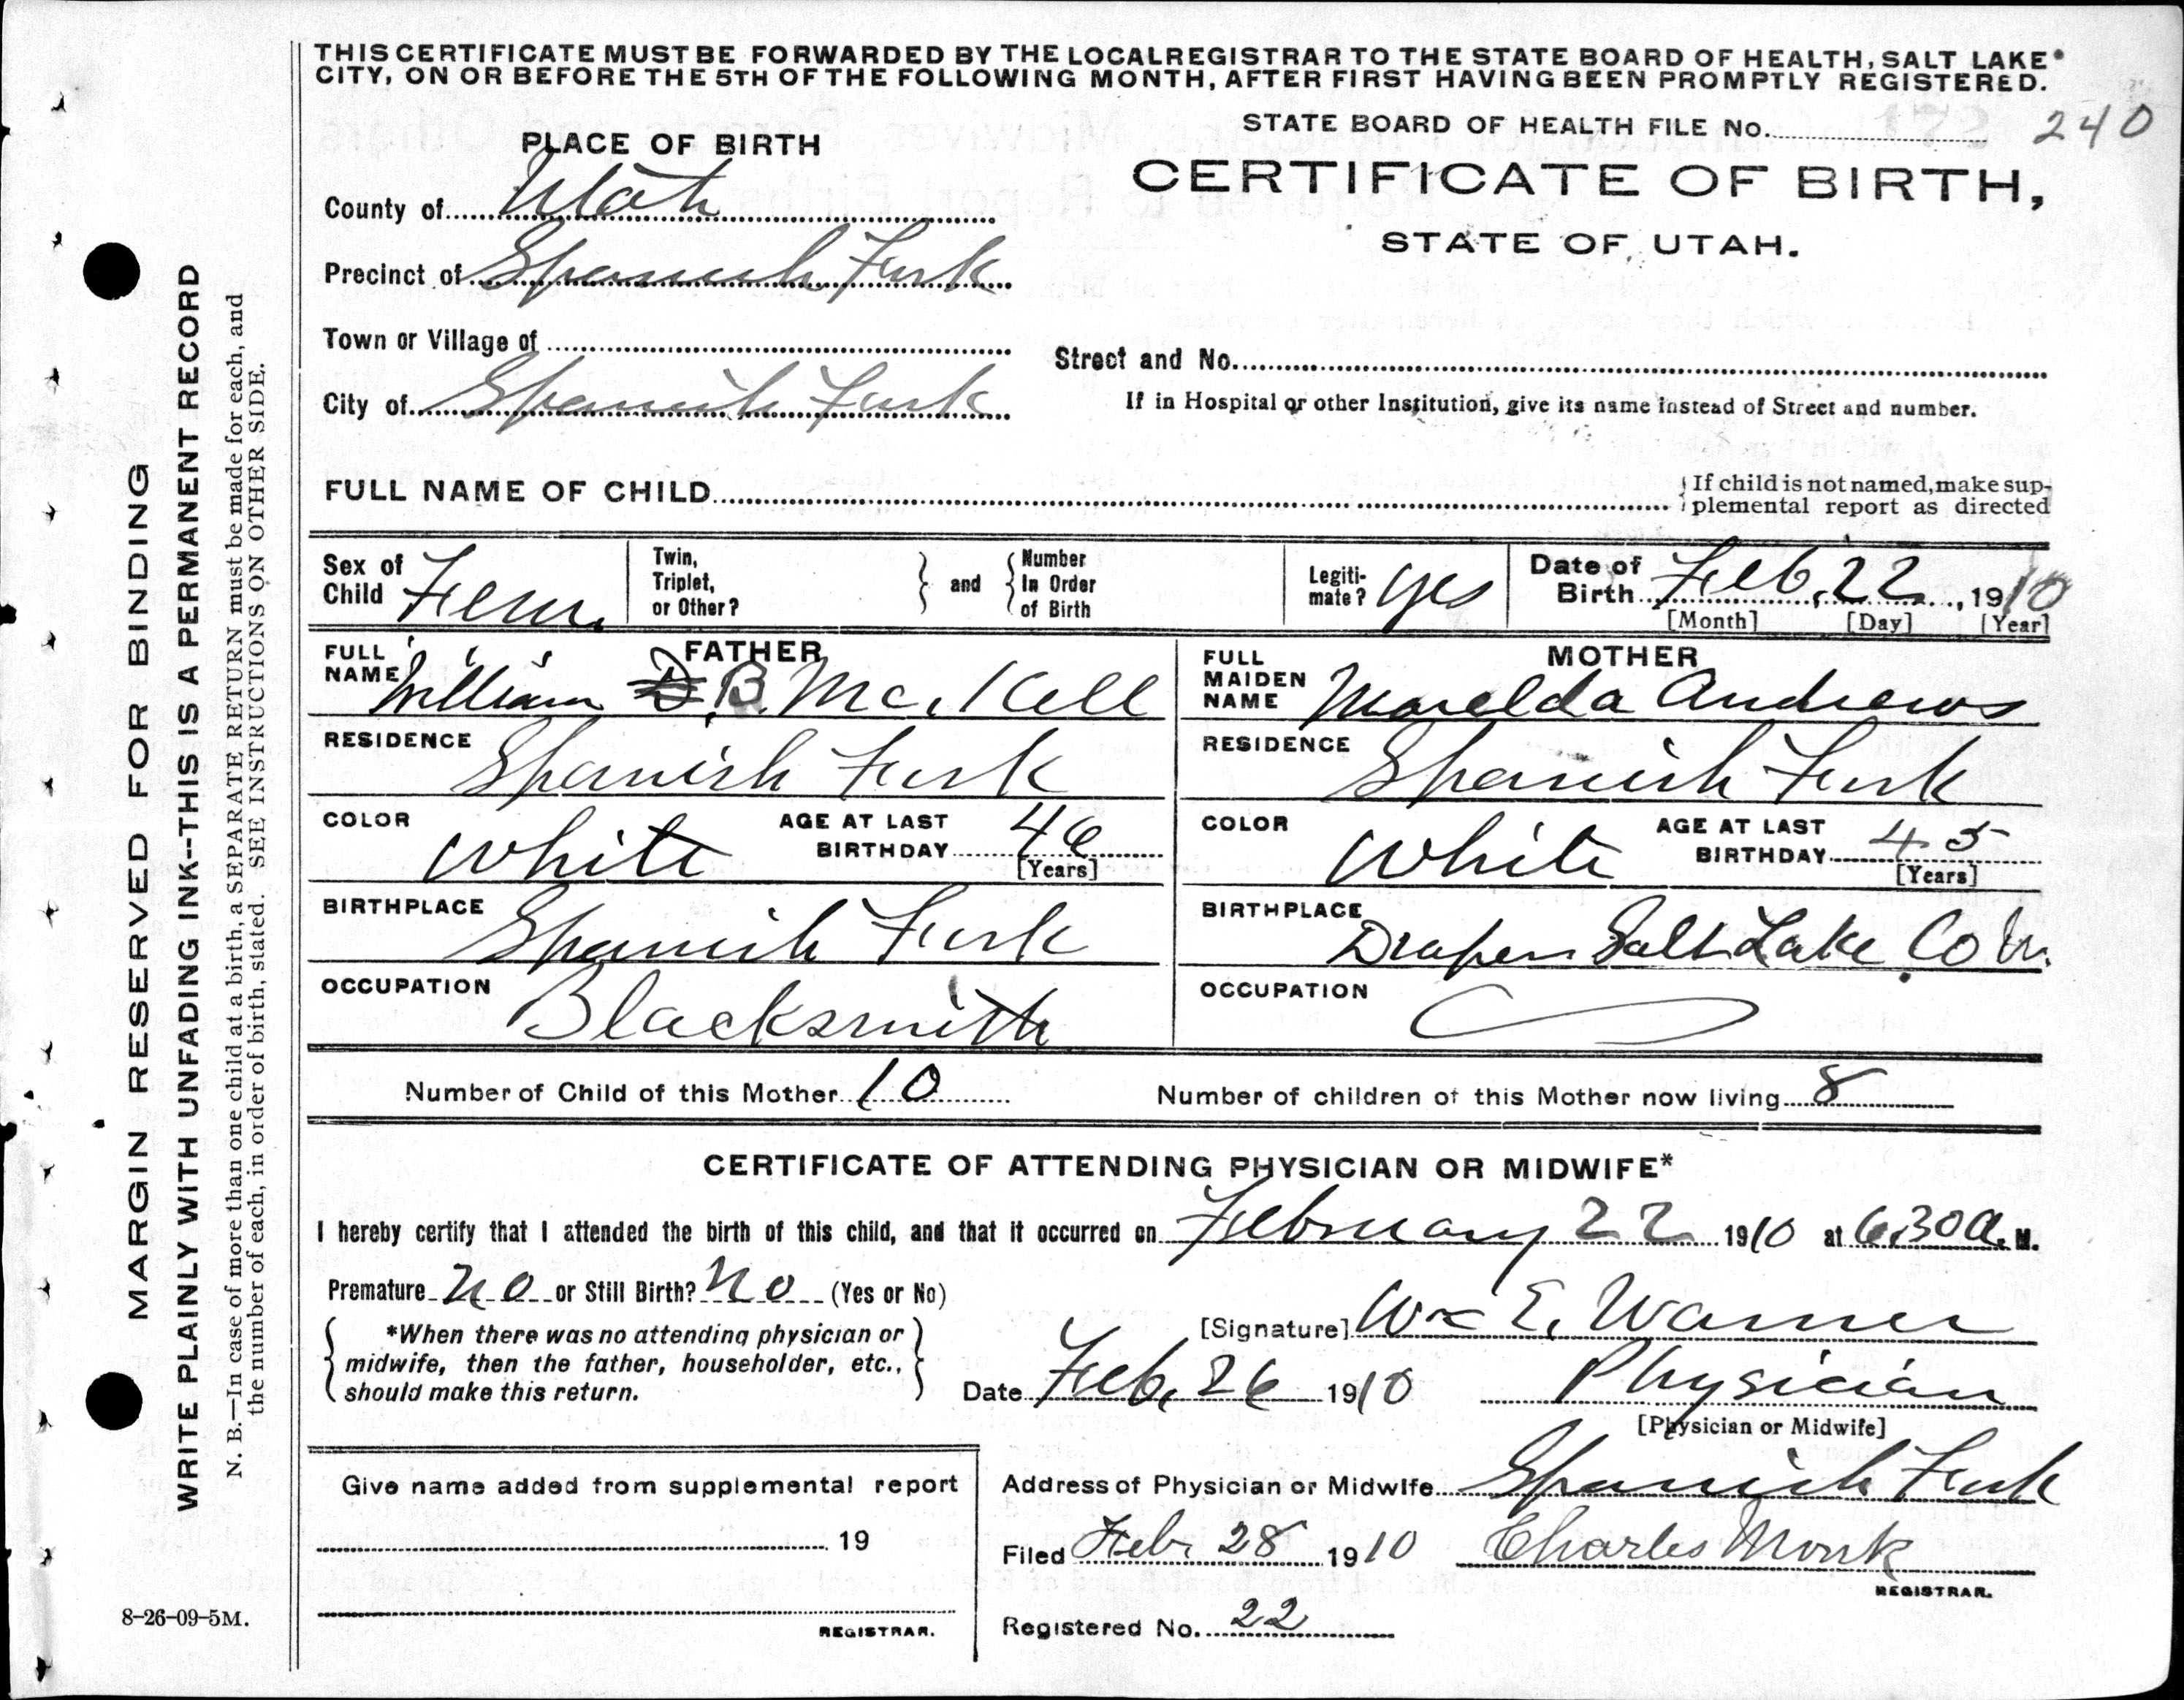 THIS CERTIFICATE MUST BE FORWARDED BY THE LOCAL REGISTRAR TO THE STATE BOARD OF HEALTH, SALT LAKE
CITY, ON OR BEFORE THE 5TH OF THE FOLLOWING MONTH, AFTER FIRST HAVING BEEN PROMPTLY REGISTERED.
STATE BOARD OF HEALTH FILE No. 240
PLACE OF BIRTH
CERTIFICATE OF BIRTH,
STATE OF UTAH.
County of Utah
Precinct of Spanish Fork
Town or Village of
Street and No.
City of Spanish Fork
If in Hospital or other Institution, give its name instead of Street and number.
FULL NAME OF CHILD
If child is not named, make sup-
plemental report as directed
Sex of Child Fem.
Twin, Triplet, or Other?
and
Number In Order of Birth
Legiti-mate? yes
Date of Birth Feb. 22, 1910
[Month] [Day] [Year]
FATHER
FULL NAME William B. Mc.Kell
MOTHER
FULL MAIDEN NAME Marelda Andrews
RESIDENCE Spanish Fork
RESIDENCE Spanish Fork
COLOR White AGE AT LAST BIRTHDAY 46 [Years]
COLOR White AGE AT LAST BIRTHDAY 45 [Years]
BIRTHPLACE Spanish Fork
BIRTHPLACE Draper Salt Lake Co
OCCUPATION Blacksmith
OCCUPATION
Number of Child of this Mother 10 Number of children of this Mother now living 8
CERTIFICATE OF ATTENDING PHYSICIAN OR MIDWIFE*
I hereby certify that I attended the birth of this child, and that it occurred on February 22 1910 at 6.30 a. M.
Premature no or Still Birth? no (Yes or No)
[Signature] Wm E. Warner
*When there was no attending physician or
midwife, then the father, householder, etc.,
should make this return.
Date Feb. 26 1910 Physician
[Physician or Midwife]
Give name added from supplemental report
19
REGISTRAR.
Address of Physician or Midwife Spanish Fork
Filed Feb. 28 1910 Charles Monk
REGISTRAR.
Registered No. 22
MARGIN RESERVED FOR BINDING
WRITE PLAINLY WITH UNFADING INK--THIS IS A PERMANENT RECORD
N. B.—In case of more than one child at a birth, a SEPARATE RETURN must be made for each, and
the number of each, in order of birth, stated. SEE INSTRUCTIONS ON OTHER SIDE.
8-26-09-5M.